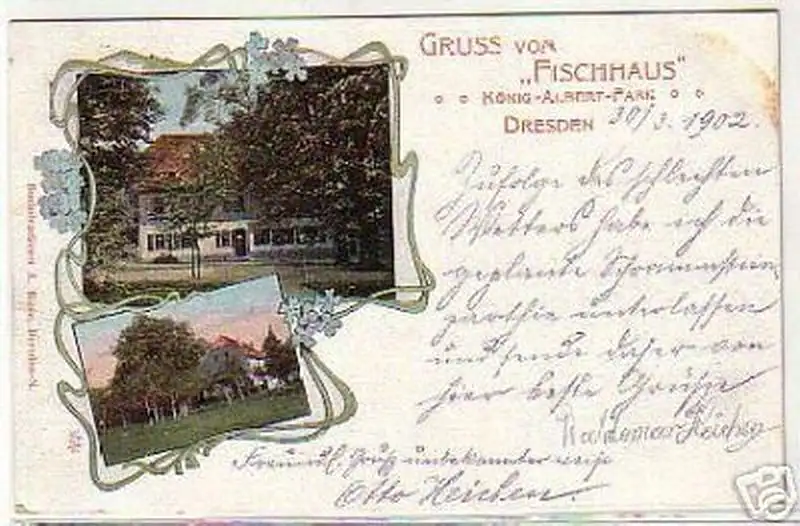 GRUSS VOM
„FISCHHAUS“
KÖNIG-ALBERT-PARK
DRESDEN 30/3. 1902.
Zufolge des schlechten
Wetters habe ich die
geplante
parthie unterlassen
und sende daher von
hier beste Grüße
Freundl. Gruß unbekannter weise
Otto Heichen